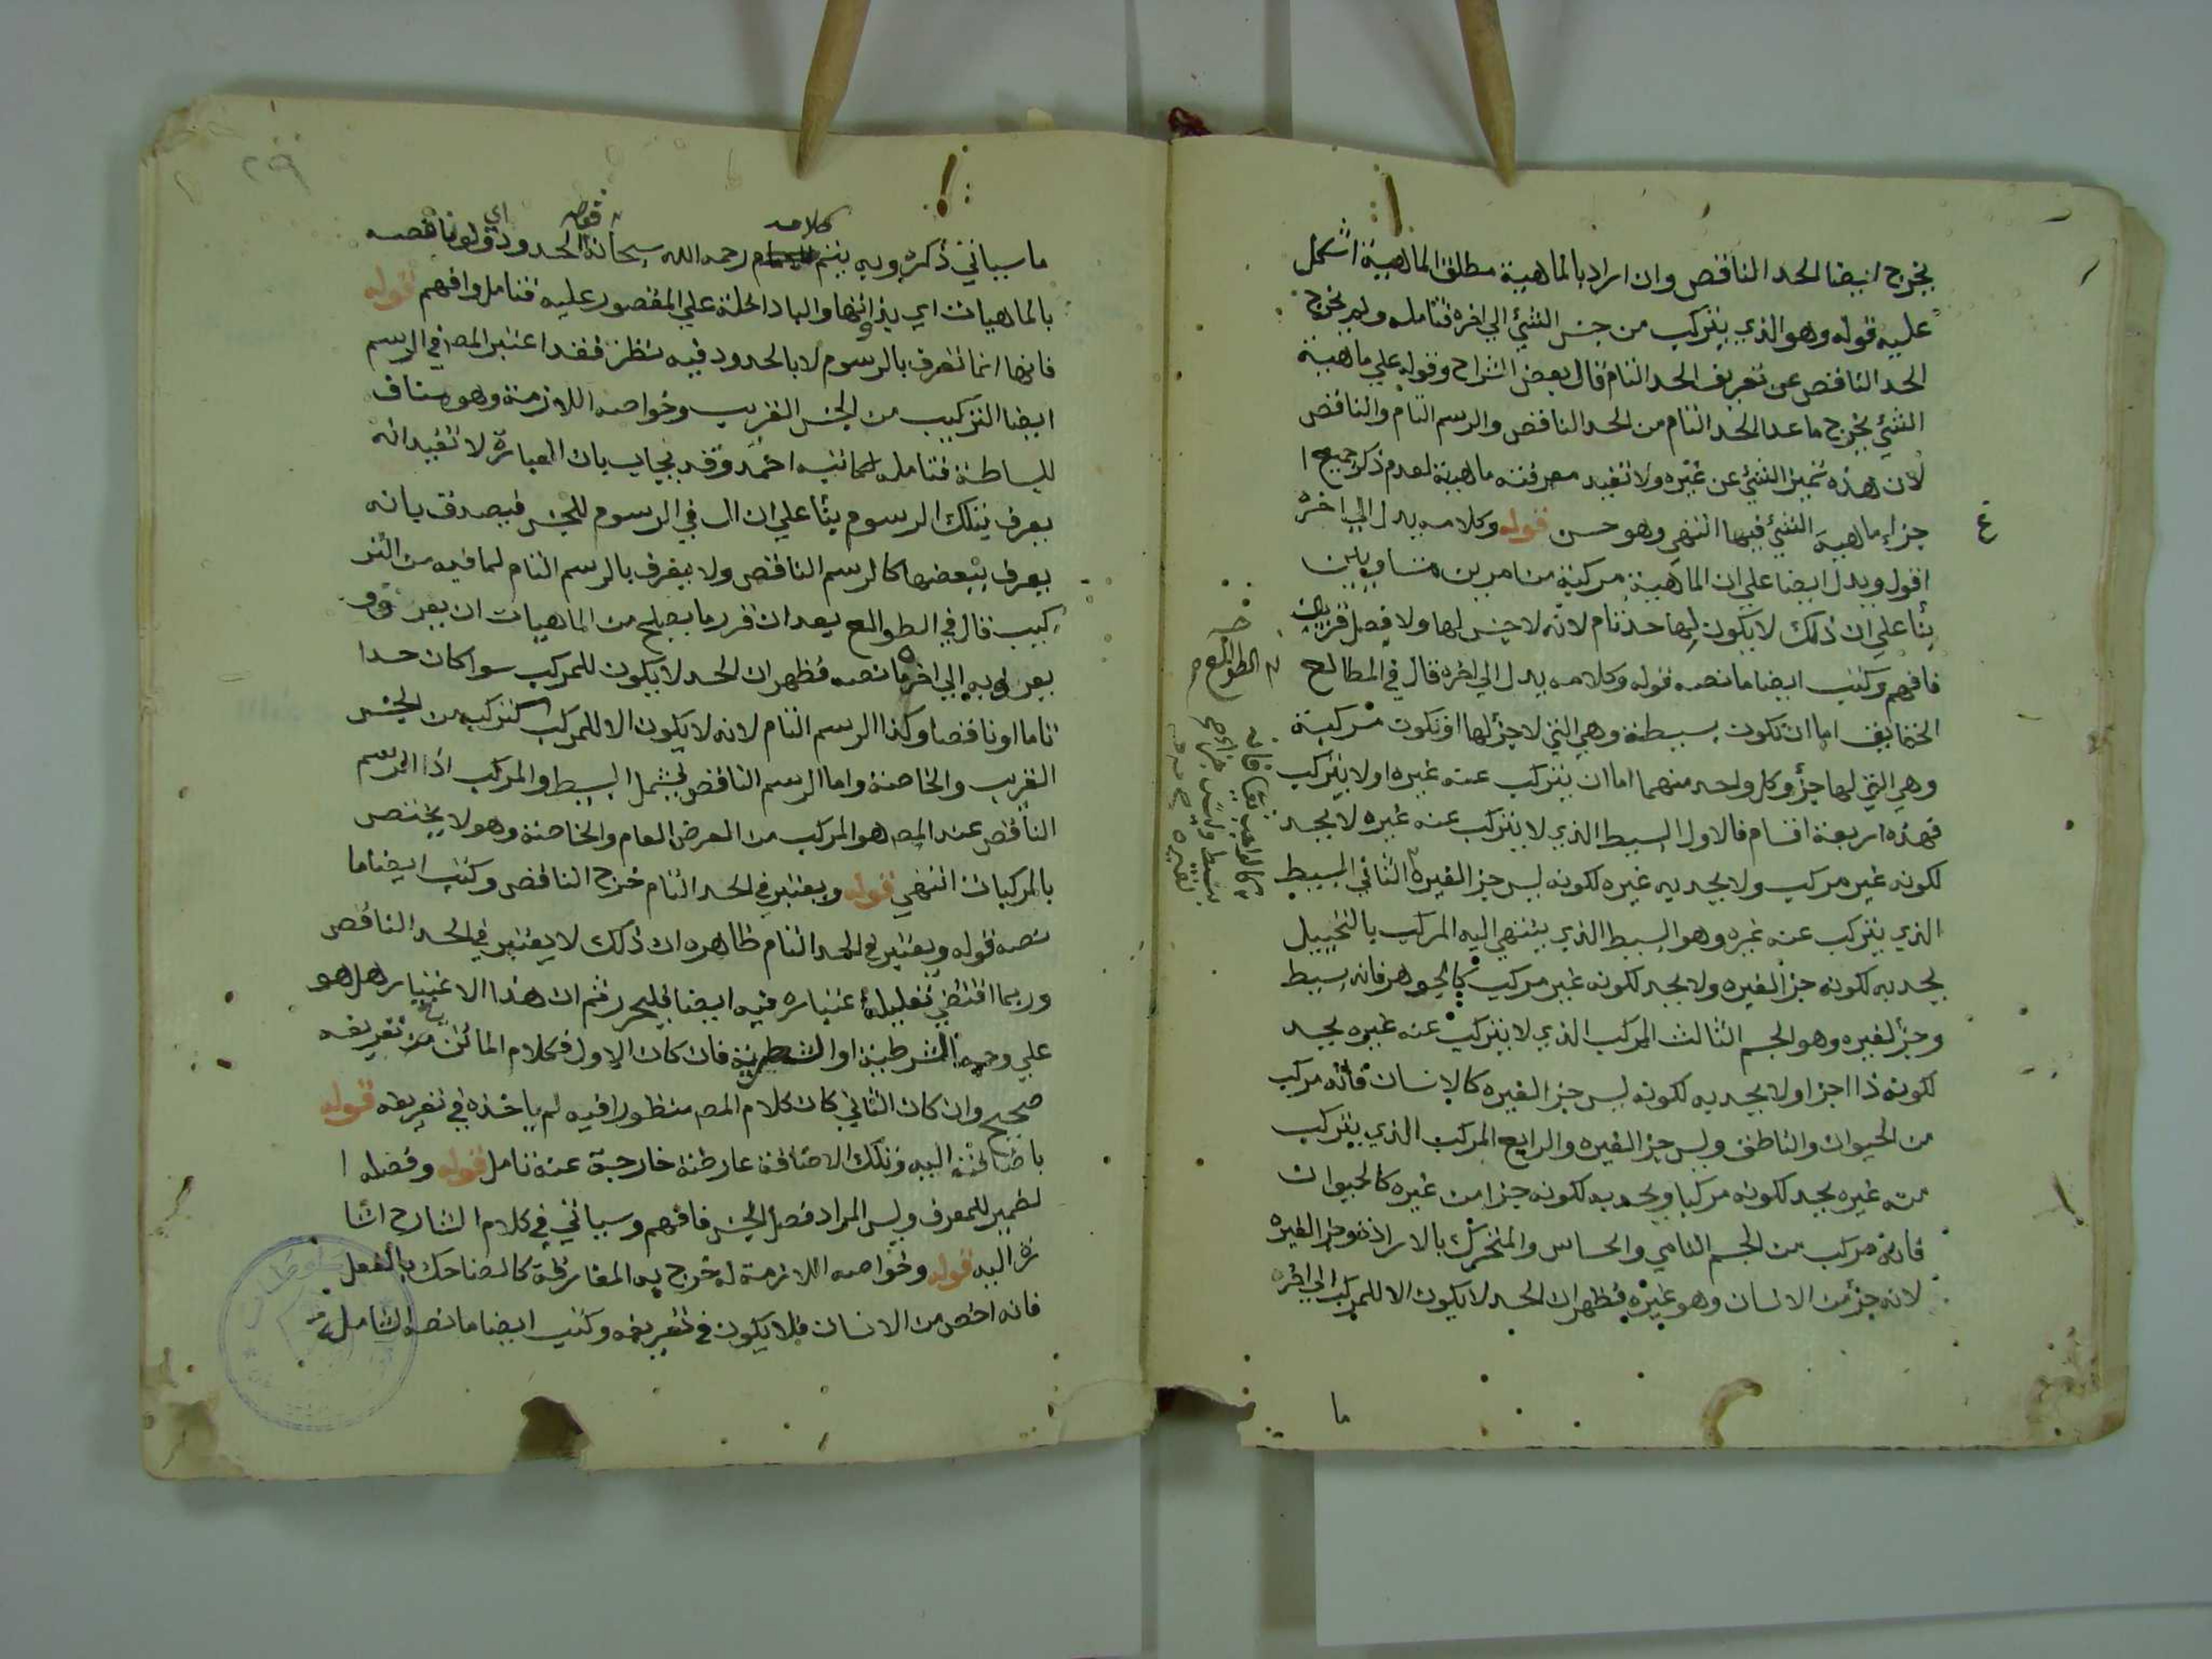 يخرج ايضا الحد الناقص وان اراد بالماهية مطلق الماهية اشكل
عليه قوله وهو الذي يتركب من جنس الشئ الي اخره فتامله ولم يخرج
الحد الناقص عن تعريف الحد التام قال بعض الشراح وقوله علي ماهية
الشئ يخرج ما عدا الحد التام من الحد الناقص والرسم التام والناقص
لان هذه تميز الشئ عن غيره ولا تفيد معرفته ماهية لعدم ذكر جميع ا
جزاء ماهية الشئ فيها انتهي وهو حسن قوله وكلامه يدل الي اخره
اقول ويدل ايضا علي ان الماهية مركبة من امرين متساويين
بنا علي ان ذلك لا يكون لها حد تام لانه لا جنس لها ولا فصل قريبان
فافهم وكتب ايضا ما نصه قوله وكلامه يدل الي اخره قال في المطالع
الحقايق اما ان تكون بسيطة وهي التي لا جزء لها او تكون مركبة
وهي التي لها جزء وكل واحد منهما اما ان يتركب عنه غيره اولا يتركب
فهذه اربعة اقسام فالاول البسيط الذي لا يتركب عنه غيره لا يحد
لكونه غير مركب ولا يحد به غيره لكونه ليس جزا لغيره الثاني البسيط
الذي يتركب عنه غيره وهو البسيط الذي ينتهي اليه المركب بالتحليل
يحد به لكونه جزا لغيره ولا يحد لكونه غير مركب كالجوهر فانه بسيط
وجزء لغيره وهو الجسم الثالث المركب الذي لا يتركب عنه غيره يحد
لكونه ذا اجزا ولا يحد به لكونه ليس جزا لغيره كالانسان فانه مركب
من الحيوان والناطق وليس جزا لغيره والرابع المركب الذي يتركب
منه غيره يحد لكونه مركبا ويحد به لكونه جزا من غيره كالحيوان
فانه مركب من الجسم النامي والحساس والمتحرك بالارادة وجزا لغيره
لانه جزء من الانسان وهو غيره فظهر ان الحد لا يكون الا للمركب الي اخره
ما
ما سياتي ذكره وبه يتم كلامه رحمه الله سبحانه الحدود قوله ناقصه
بالماهيات اي بذاتها والبا داخلة علي المقصور عليه فتامل وافهم قوله
فانها انما تعرف بالرسوم لا بالحدود فيه نظر فقد اعتبر المص في الرسم
ايضا التركيب من الجنس القريب وخواصه اللازمة وهو مناف
للبساطة فتامله احمد وقد يجاب بان العبارة لا تفيد انه
يعرف بتلك الرسوم بنا علي ان ال في الرسوم للجنس فيصدق بانه
يعرف ببعضها كالرسم الناقص ولا يعرف بالرسم التام لما فيه من التر
كيب قال في الطوالع بعد ان قرر ما يصلح من الماهيات ان يعرف و
يعرف به الي اخره ما نصه فظهر ان الحد لا يكون للمركب سوا كان حدا
تاما او ناقصا وكذا الرسم التام لانه لا يكون الا للمركب كتركبه من الجنس
القريب والخاصة واما الرسم الناقص يشمل البسيط والمركب اذا الرسم
الناقص عند المص هو المركب من العرض العام والخاصة وهو لا يختص
بالمركبات انتهي قوله ويعتبر في الحد التام خرج الناقص وكتب ايضا ما
نصه قوله ويعتبر في الحد التام ظاهره ان ذلك لا يعتبر في الحد الناقص
وربما اقتضي تعليله اعتباره فيه ايضا فليحرر ثم ان هذا الاعتبار هل هو
علي وجه الشرطية او الشطرية فان كان الاول فكلام الماتن من تعريفه
صحيح وان كان الثاني كان كلام المص منظورا فيه لم ياخذه في تعريفه قوله
باضافته اليه وتلك الاضافة عارضة خارجة عنه تامل قوله وفصله ا
لضمير للمعرف وليس المراد فصل الجنس فافهم وسياتي في كلام الشارح اشا
رة اليه قوله وخواصه اللازمة له خرج به المفارقة كالضاحك بالفعل
فانه اخص من الانسان فلا يكون في تعريفه وكتب ايضا ما نصه الشاملة